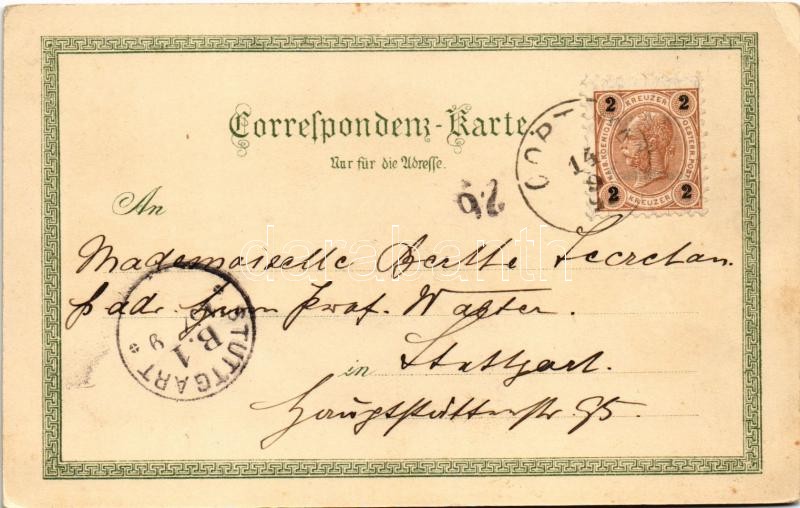 Correspondenz-Karte.
Nur für die Adresse.
An
Mademoiselle Berthe Secretan.
p adr. Herrn Prof. Walter.
in Stuttgart.
Hauptstätterstr. 95.
2 KREUZER 2
KAIS. KOENIGL. OESTERR. POST
2 KREUZER 2
CORT
14
STUTTGART
B.1
9
26
darabanth